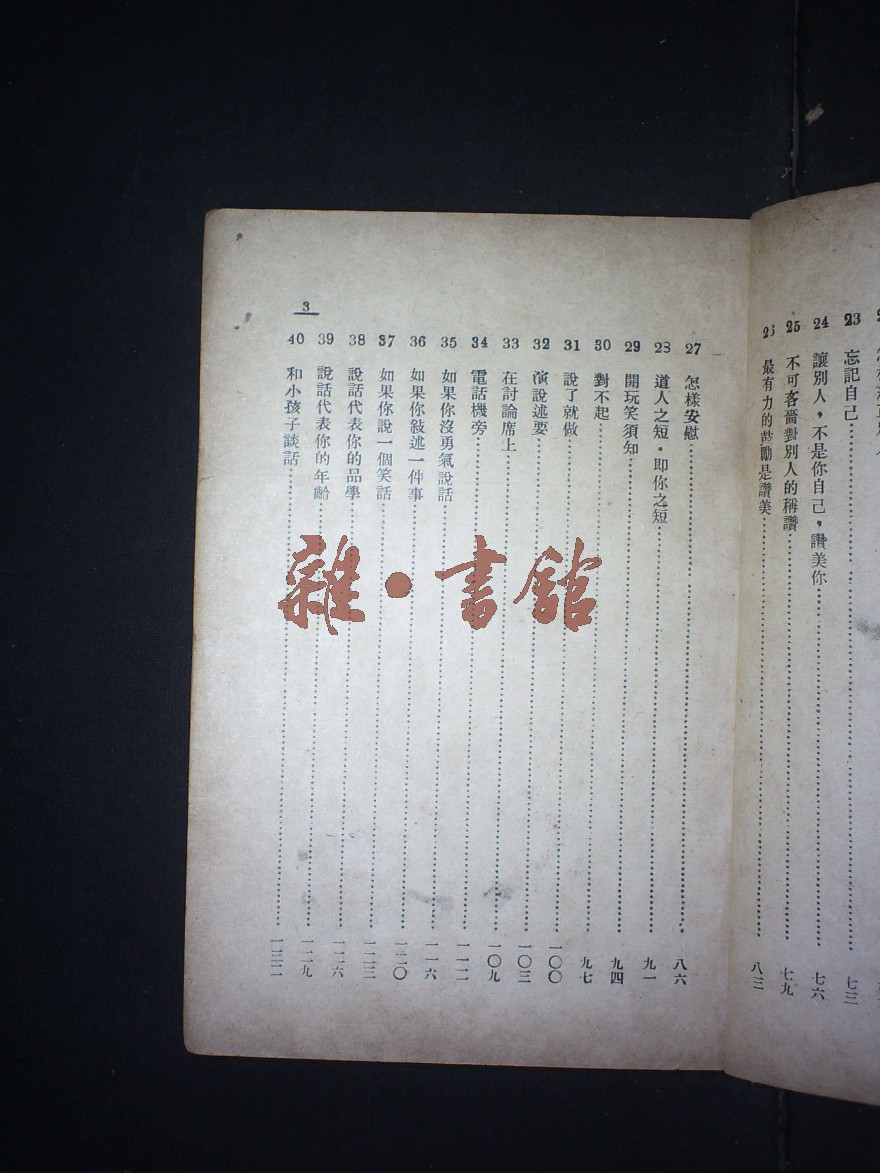 23 忘記自己 七三
24 讓別人，不是你自己，讚美你 七六
25 不可吝嗇對別人的稱讚 七九
26 最有力的鼓勵是讚美 八三
27 怎樣安慰 八六
28 道人之短·即你之短 九一
29 開玩笑須知 九四
30 對不起 九七
31 說了就做 一〇〇
32 演說述要 一〇三
33 在討論席上 一〇九
34 電話機旁 一一二
35 如果你沒勇氣說話 一一六
36 如果你敍述一件事 一二〇
37 如果你說一個笑話 一二三
38 說話代表你的品學 一二六
39 說話代表你的年齡 一二九
40 和小孩子談話 一三二
3
雜·書館